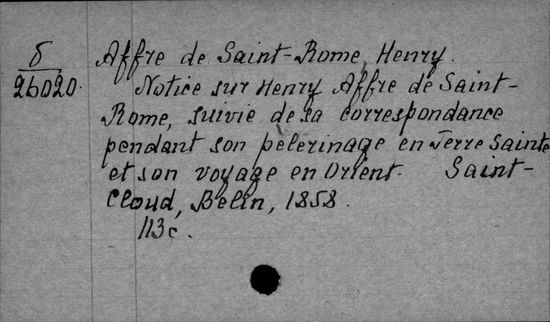 δ
26020.
Affre de Saint-Rome, Henry.
Notice sur Henry Affre de Saint-
Rome, suivie de sa correspondance
pendant son pelerinage en Terre Sainte
et son voyage en Orient. Saint-
Cloud, Belin, 1858.
113c.